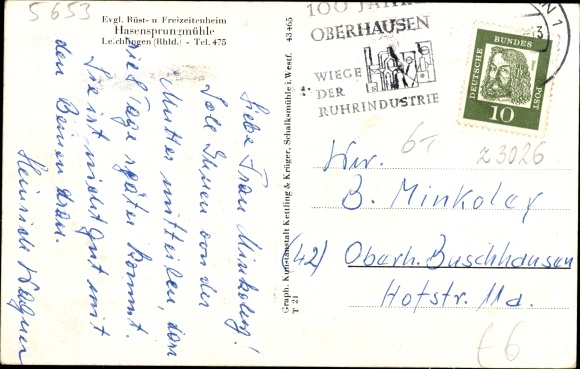 5653
Evgl. Rüst- u. Freizeitenheim
Hasensprungmühle
Leichlingen (Rhld.) - Tel. 475
Liebe Frau Minkoley!
Soll Ihnen von der
Mutter mitteilen, dass
sie 2 Tage später kommt.
Sie ist nicht gut mit
den Beinen dran.
Heinrich Wagner
43465
Graph. Kunstanstalt Kettling & Krüger, Schalksmühle i. Westf.
T 21
100 JAHRE
OBERHAUSEN
WIEGE
DER
RUHRINDUSTRIE
DEUTSCHE BUNDES POST
10
6-
z 3026
Frau
B. Minkoley
(42) Oberh. Buschhausen
Hofstr. 11a.
€6